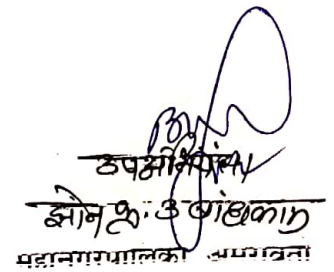 उपअभियंता
झोन क्र. ३ बांधकाम
महानगरपालिका अमरावती